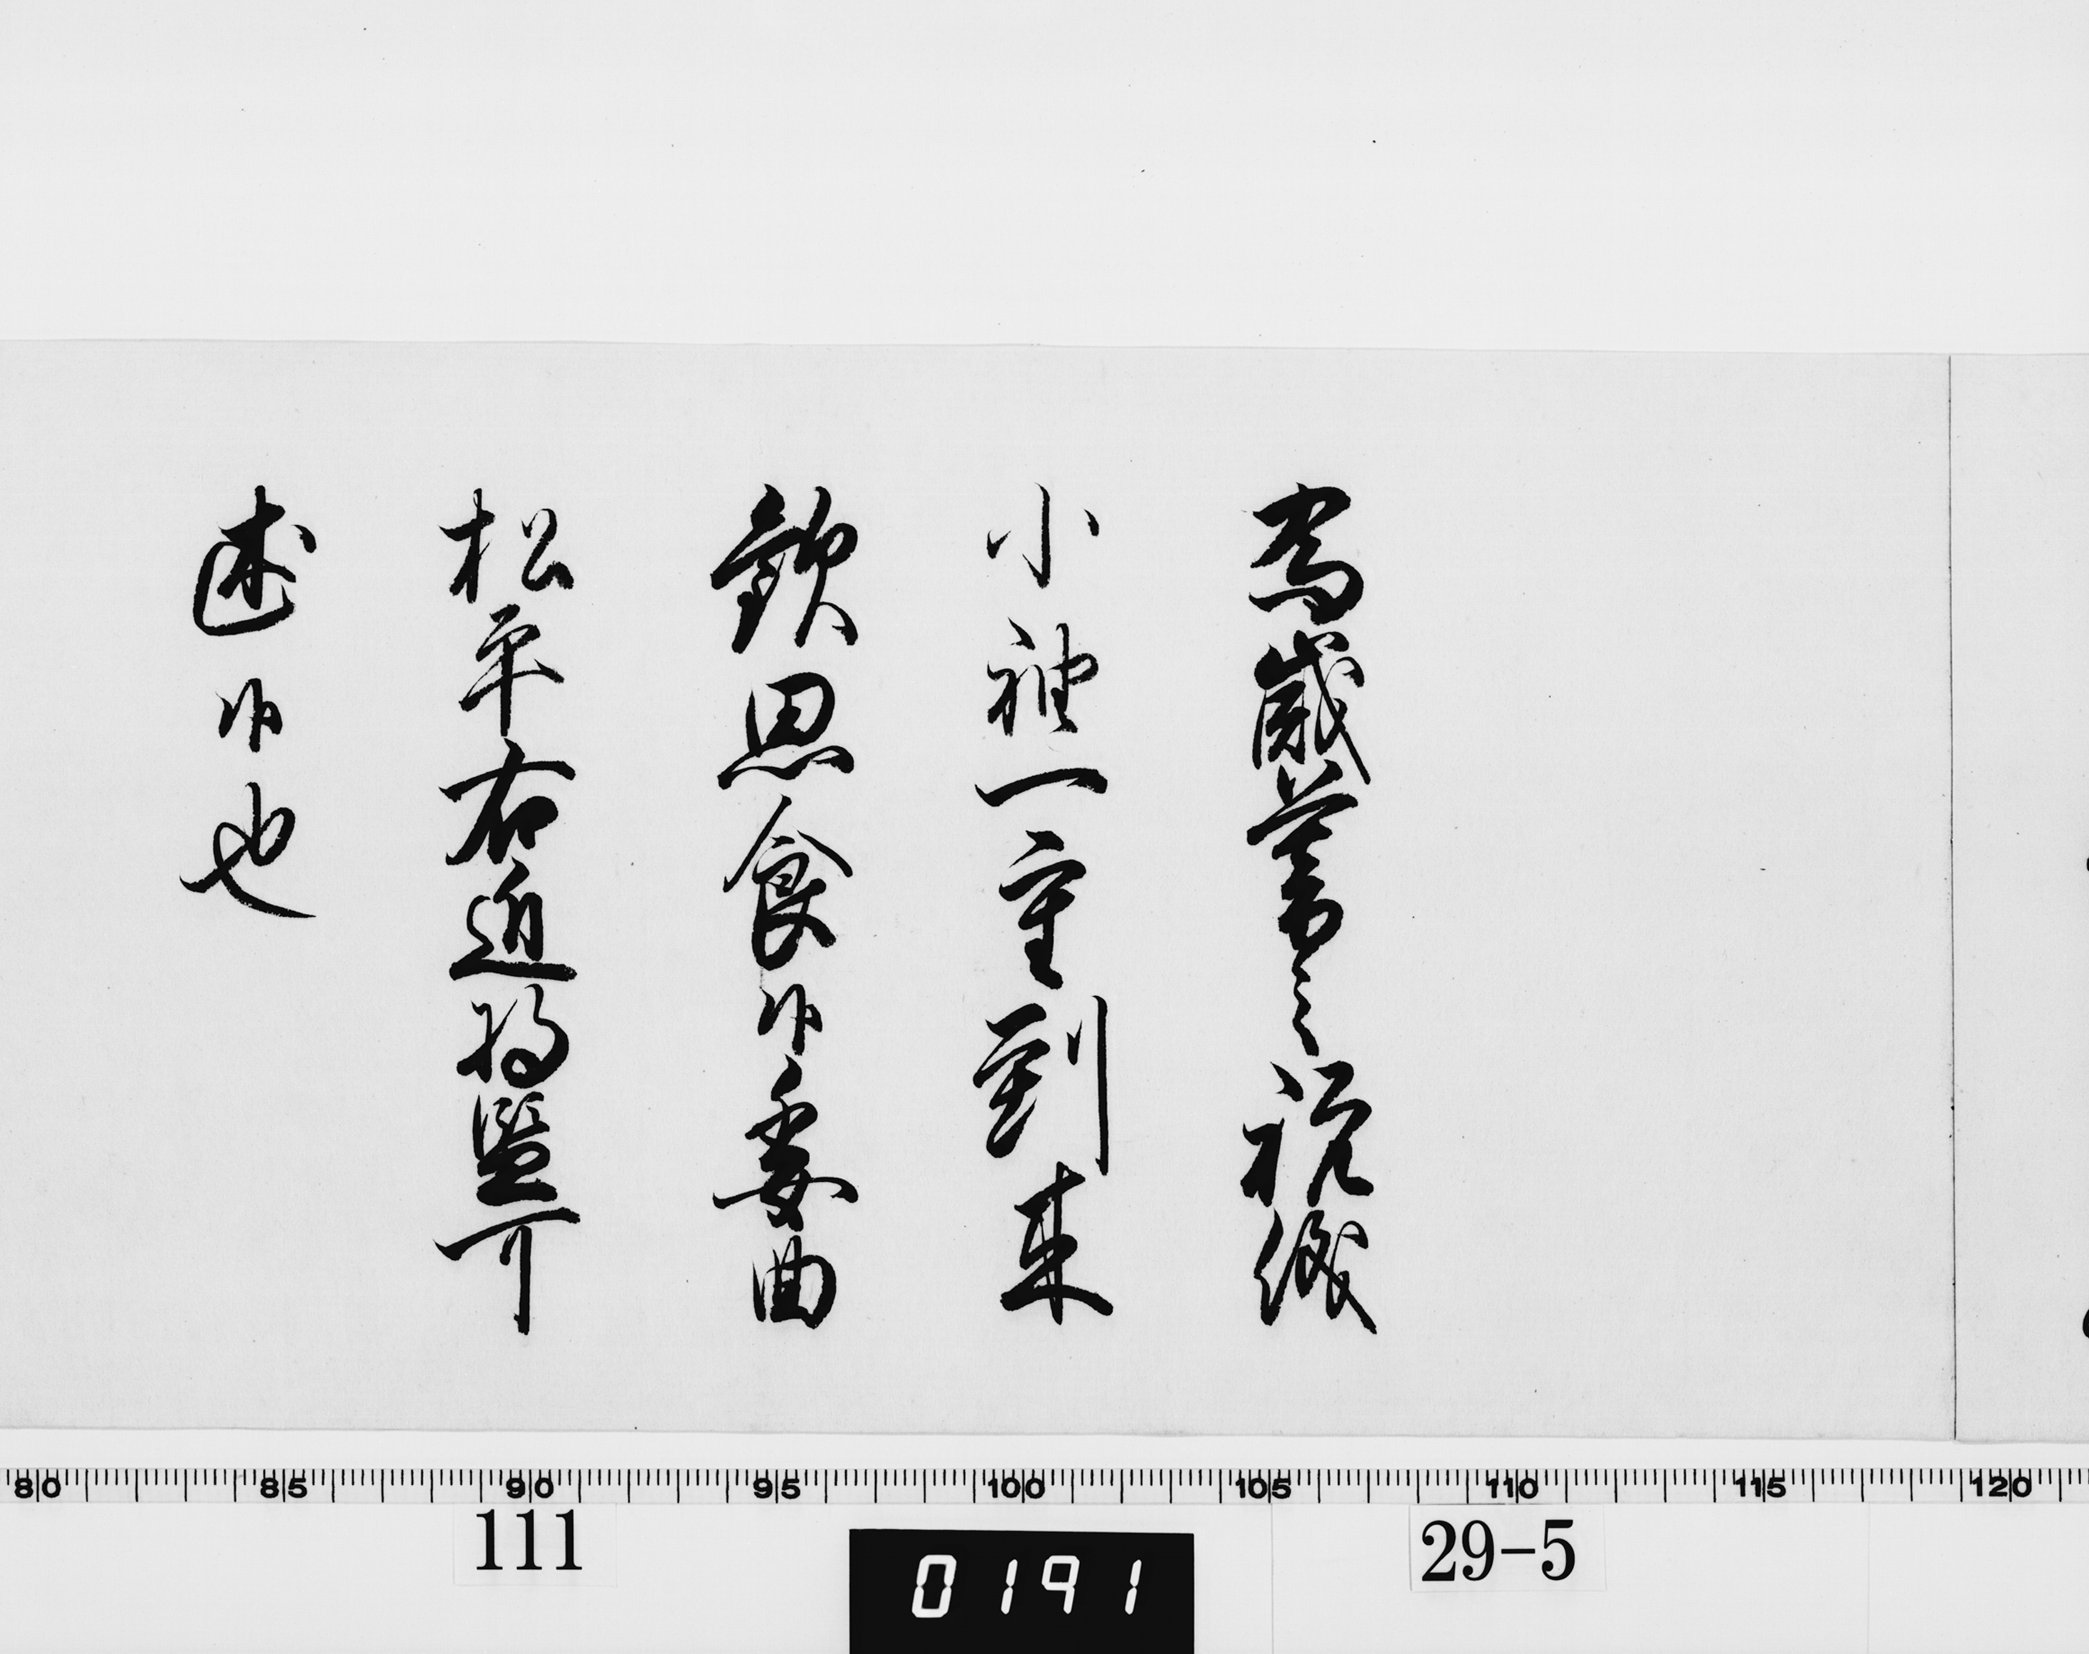 為歳暮之祝儀
小袖一重到来
歓思食候委曲
松平右近将監可
述候也
80 85 90 95 100 105 110 115 120
111
0191
29-5